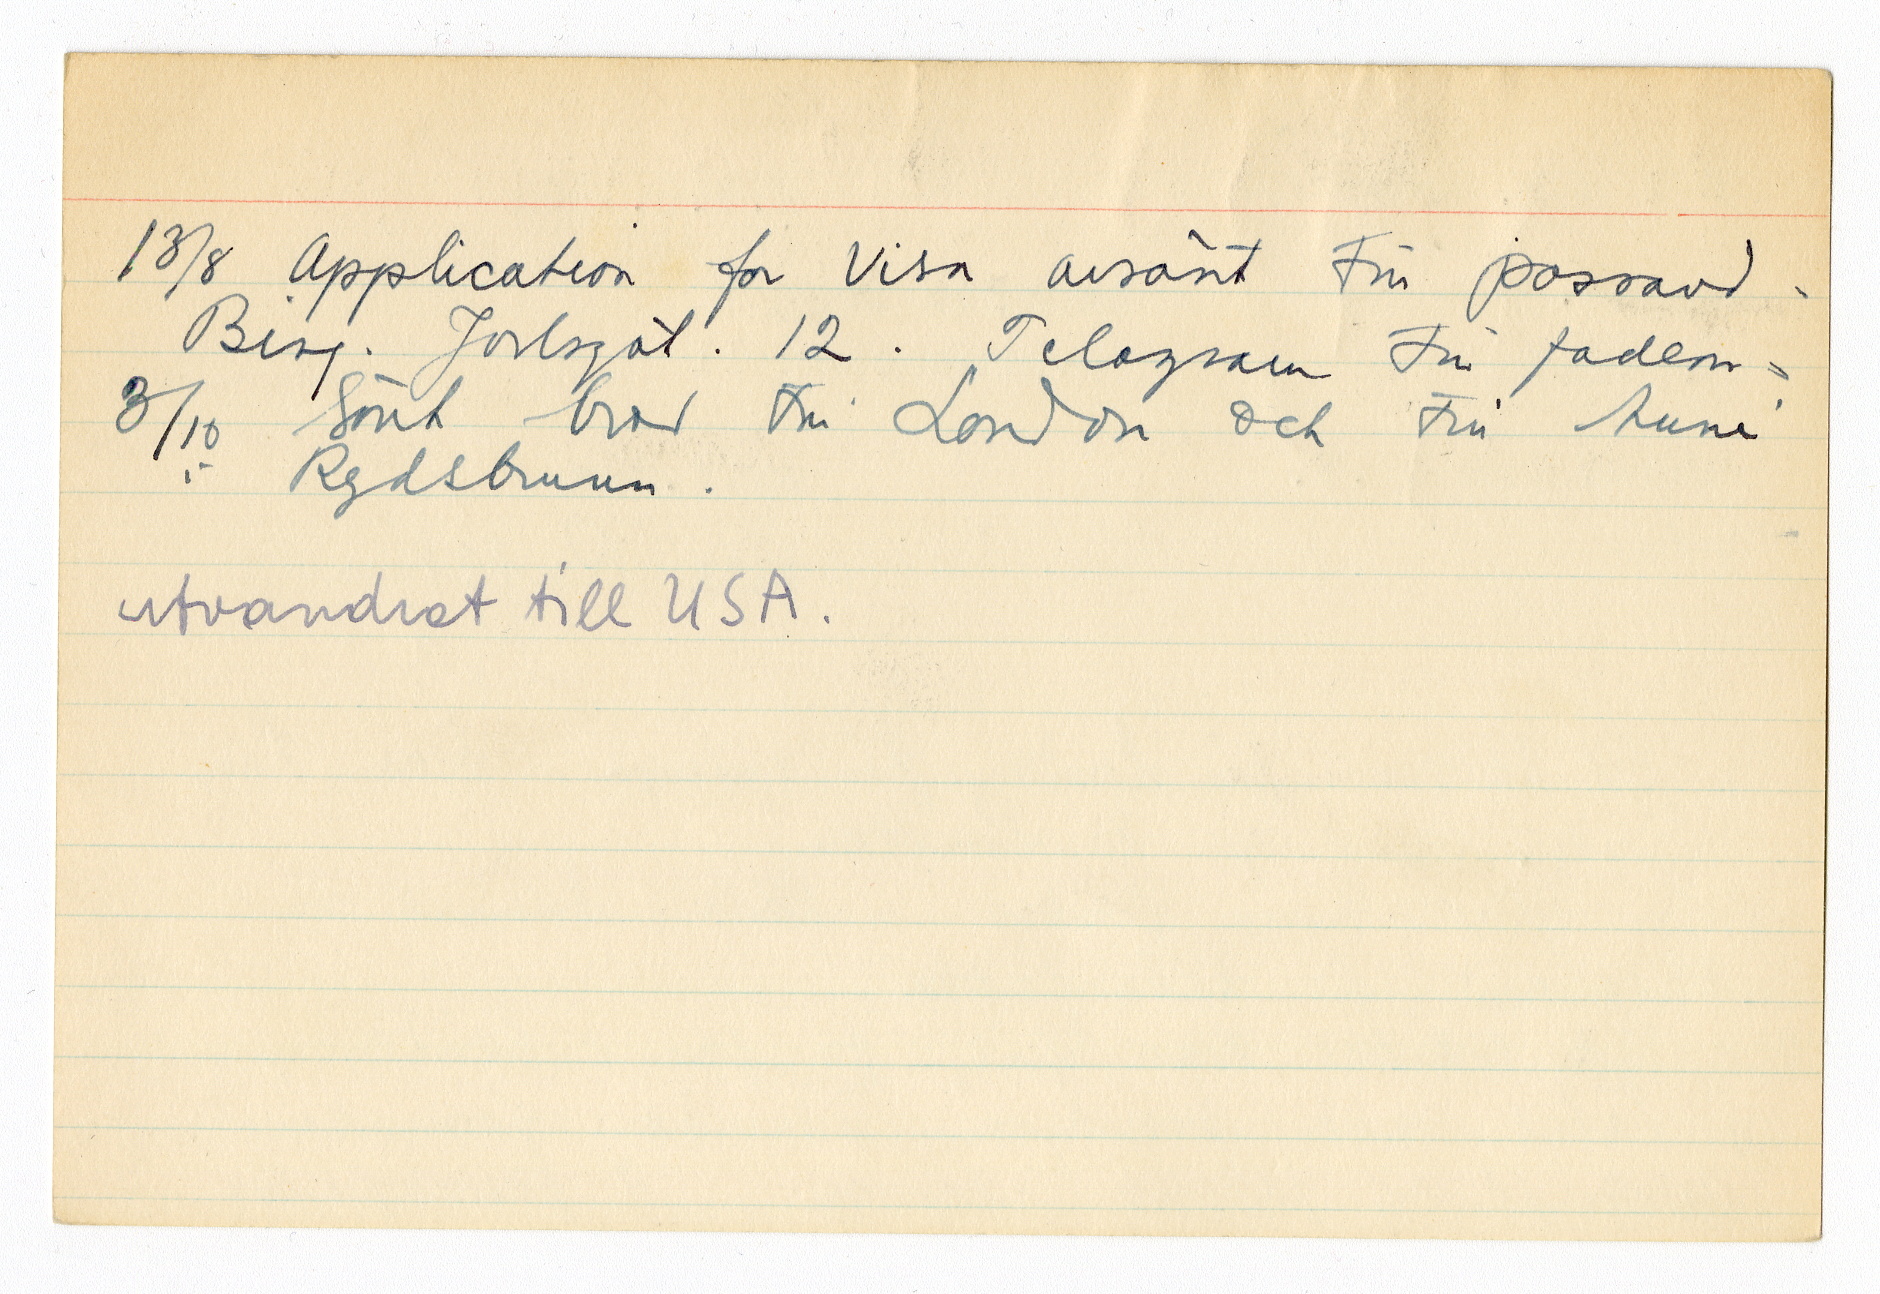 13/8 Application for Visa avsänt passavd.
Birg. Jarlsgat. 12. Telegram fadern.
3/10 Sänt brev London och
i Rydsbrunn.
utvandrat till USA.